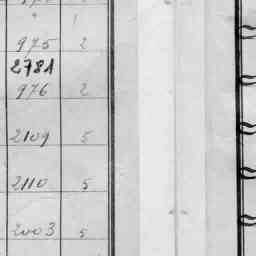 975 2
2781
976 2
2109 5
2110 5
2003 5